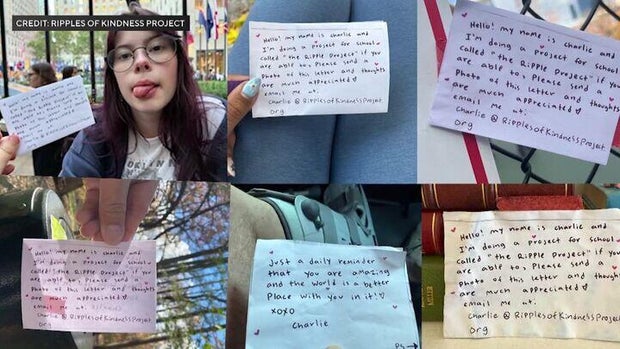 CREDIT: RIPPLES OF KINDNESS PROJECT
Hello! my name is charlie and
I'm doing a project for school
called "the RiPPle Project" if you
are able to, Please send a
Photo of this letter and thoughts
are much appreciated
email me at:
Charlie @ RipplesofKindnessProject.
org
Hello! my name is charlie and
I'm doing a project for school
called "the RiPPle Project" if you
are able to, Please send a
Photo of this letter and thoughts
are much appreciated!
email me at:
Charlie @ RipplesofKindnessProject
Org
Hello! my name is charlie and
I'm doing a project for school
called "the RiPPle Project" if you
are able to, Please send a
Photo of this letter and thoughts
are much appreciated
email me at:
Charlie @ RipplesofKindnessProject
Org
Just a daily reminder
that you are amazing
and the world is a better
Place with you in it!
xoxo
Charlie
PS
Hello! my name is charlie and
I'm doing a project for school
called "the RiPPle Project" if you
are able to, Please send a
Photo of this letter and thoughts
are much appreciated
email me at:
Charlie @ RipplesofKindnessProject
Org